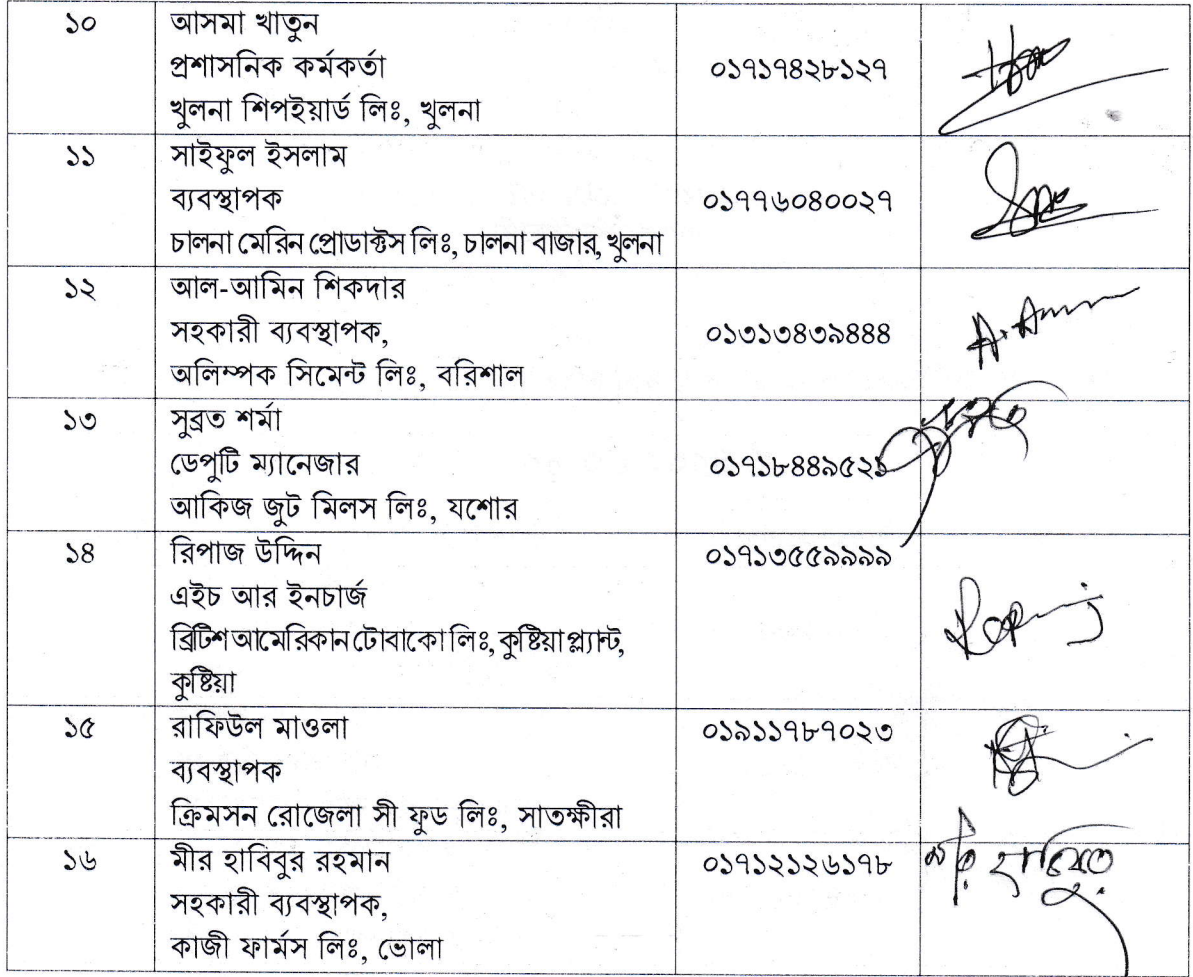 ১০
আসমা খাতুন
প্রশাসনিক কর্মকর্তা
খুলনা শিপইয়ার্ড লিঃ, খুলনা
০১৭১৭৪২৮১২৭
১১
সাইফুল ইসলাম
ব্যবস্থাপক
চালনা মেরিন প্রোডাক্টস লিঃ, চালনা বাজার, খুলনা
০১৭৭৬০৪০০২৭
১২
আল-আমিন শিকদার
সহকারী ব্যবস্থাপক,
অলিম্পক সিমেন্ট লিঃ, বরিশাল
০১৩১৩৪৩৯৪৪৪
A. Amin
১৩
সুব্রত শর্মা
ডেপুটি ম্যানেজার
আকিজ জুট মিলস লিঃ, যশোর
০১৭১৮৪৪৯৫২১
১৪
রিপাজ উদ্দিন
এইচ আর ইনচার্জ
ব্রিটিশ আমেরিকান টোবাকো লিঃ, কুষ্টিয়া প্ল্যান্ট,
কুষ্টিয়া
০১৭১৩৫৫৯৯৯৯
১৫
রাফিউল মাওলা
ব্যবস্থাপক
ক্রিমসন রোজেলা সী ফুড লিঃ, সাতক্ষীরা
০১৯১১৭৮৭০২৩
১৬
মীর হাবিবুর রহমান
সহকারী ব্যবস্থাপক,
কাজী ফার্মস লিঃ, ভোলা
০১৭১২১২৬১৭৮